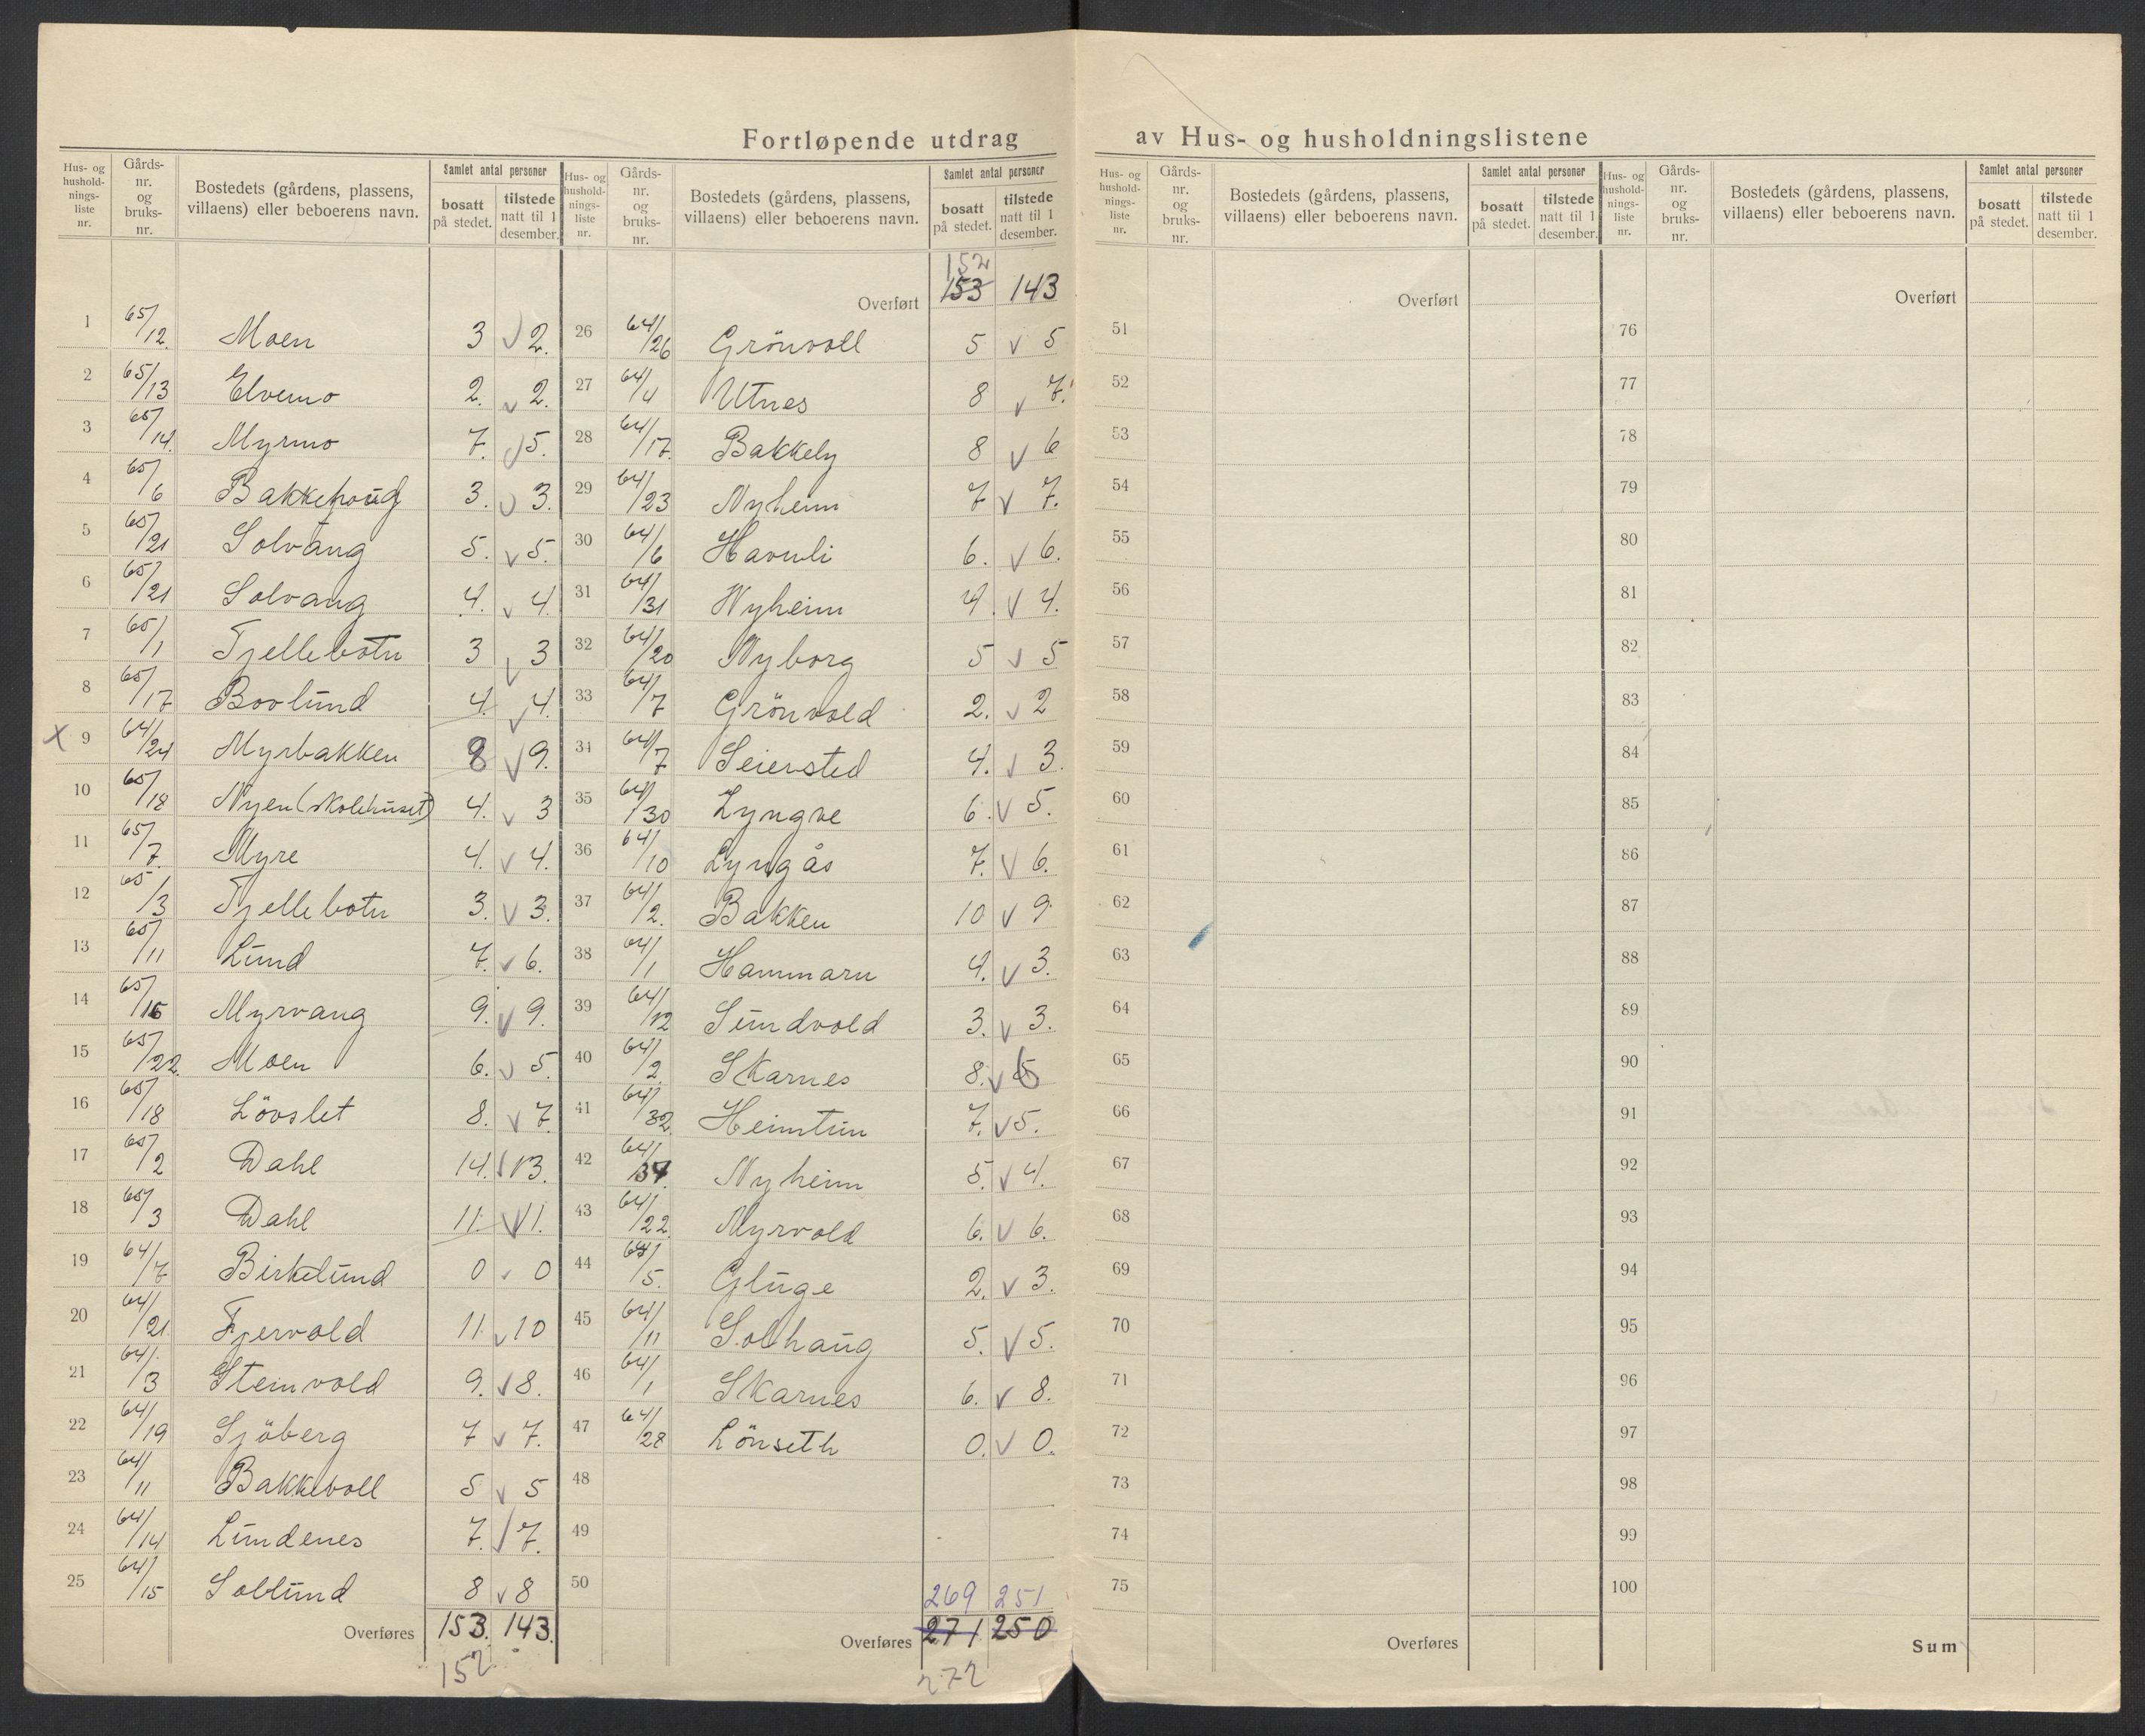 Fortløpende utdrag av Hus- og husholdningslistene
Hus- og hushold- nings- liste nr. | Gårds- nr. og bruks- nr. | Bostedets (gårdens, plassens, villaens) eller beboerens navn. | Samlet antal personer | bosatt på stedet. | tilstede natt til 1 desember.
1 65/12. Moen 3 v 2.
2 65/13 Elvemo 2. v 2.
3 65/14. Myrmo 7. v 5.
4 65/6 Bakkehaug 3. v 3.
5 65/21 Solvang 5. v 5.
6 65/21 Solvang 4. v 4.
7 65/1 Fjellebotn 3 v 3
8 65/17 Boolund 4. v 4.
x 9 64/24 Myrbakken 8 v 9.
10 65/18 Nyen (skolehuset) 4. v 3
11 65/7. Myre 4. v 4.
12 65/3 Fjellebotn 3. v 3.
13 65/11 Lund 7. v 6.
14 65/16 Myrvang 9. v 9.
15 65/22. Moen 6. v 5.
16 65/18 Lövslet 8. v 7.
17 65/2 Dahl 14. v 13.
18 65/3 Dahl 11. v 11.
19 64/7 Birkelund 0 v 0
20 64/21 Fjervold 11. v 10
21 64/3 Steinvold 9. v 8.
22 64/19 Sjöberg 7 v 7.
23 64/11 Bakkevoll 5 v 5
24 64/14 Lundenes 7. v 7.
25 64/15 Sollund 8 v 8
Overføres 153. 143.
152
Hus- og hushold- nings- liste nr. | Gårds- nr. og bruks- nr. | Bostedets (gårdens, plassens, villaens) eller beboerens navn. | Samlet antal personer | bosatt på stedet. | tilstede natt til 1 desember.
152
Overført 153 143
26 64/26 Grönvoll 5 v 5
27 64/4 Utnes 8 v 7.
28 64/17. Bakkely 8 v 6
29 64/23 Nyheim 7 v 7.
30 64/6 Havnli 6. v 6.
31 64/31 Nyheim 4. v 4.
32 64/20 Nyborg 5 v 5
33 64/7 Grönvold 2. v 2
34 64/7 Seiersted 4. v 3.
35 64/30 Lyngve 6. v 5.
36 64/10 Lyngås 7. v 6.
37 64/2. Bakken 10 v 9
38 64/1 Hammarn 4. v 3.
39 64/12 Sundvold 3. v 3.
40 64/2. Skarnes 8. v 6
41 64/32. Heimtun 7. v 5.
42 64/34. Nyheim 5. v 4.
43 64/22. Myrvold 6. v 6.
44 64/5. Gluge 2. v 3.
45 64/11 Solhaug 5. v 5.
46 64/1 Skarnes 6. v 8.
47 64/28 Lönseth 0. v 0.
48
49
50
269 251
Overføres 271 250
272
Hus- og hushold- nings- liste nr. | Gårds- nr. og bruks- nr. | Bostedets (gårdens, plassens, villaens) eller beboerens navn. | Samlet antal personer | bosatt på stedet. | tilstede natt til 1 desember.
Overført
51
52
53
54
55
56
57
58
59
60
61
62
63
64
65
66
67
68
69
70
71
72
73
74
75
Overføres
Hus- og hushold- nings- liste nr. | Gårds- nr. og bruks- nr. | Bostedets (gårdens, plassens, villaens) eller beboerens navn. | Samlet antal personer | bosatt på stedet. | tilstede natt til 1 desember.
Overført
76
77
78
79
80
81
82
83
84
85
86
87
88
89
90
91
92
93
94
95
96
97
98
99
100
Sum